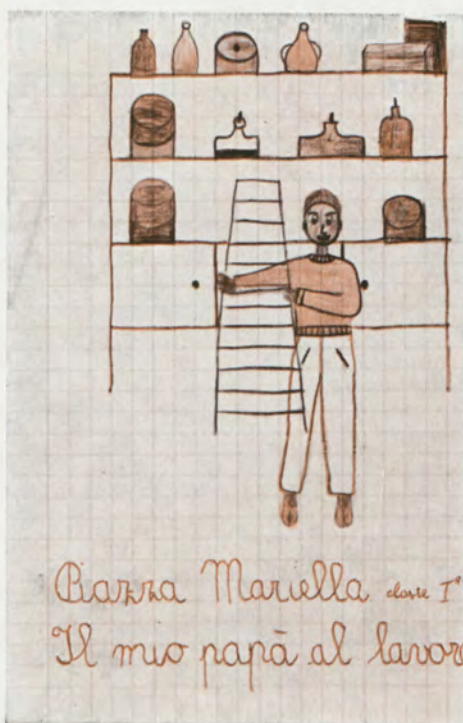 Piazza Mariella classe Iª
Il mio papà al lavoro